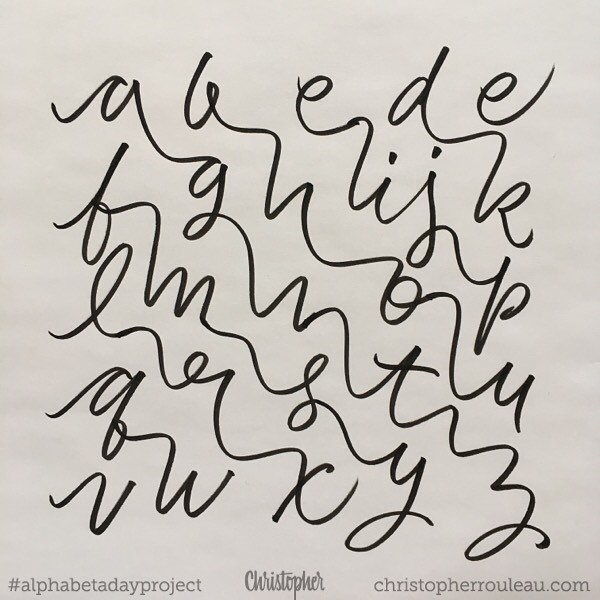 a b c d e
f g h i j k
l m n o p
q r s t u
v w x y z
#alphabetadayproject Christopher christopherrouleau.com